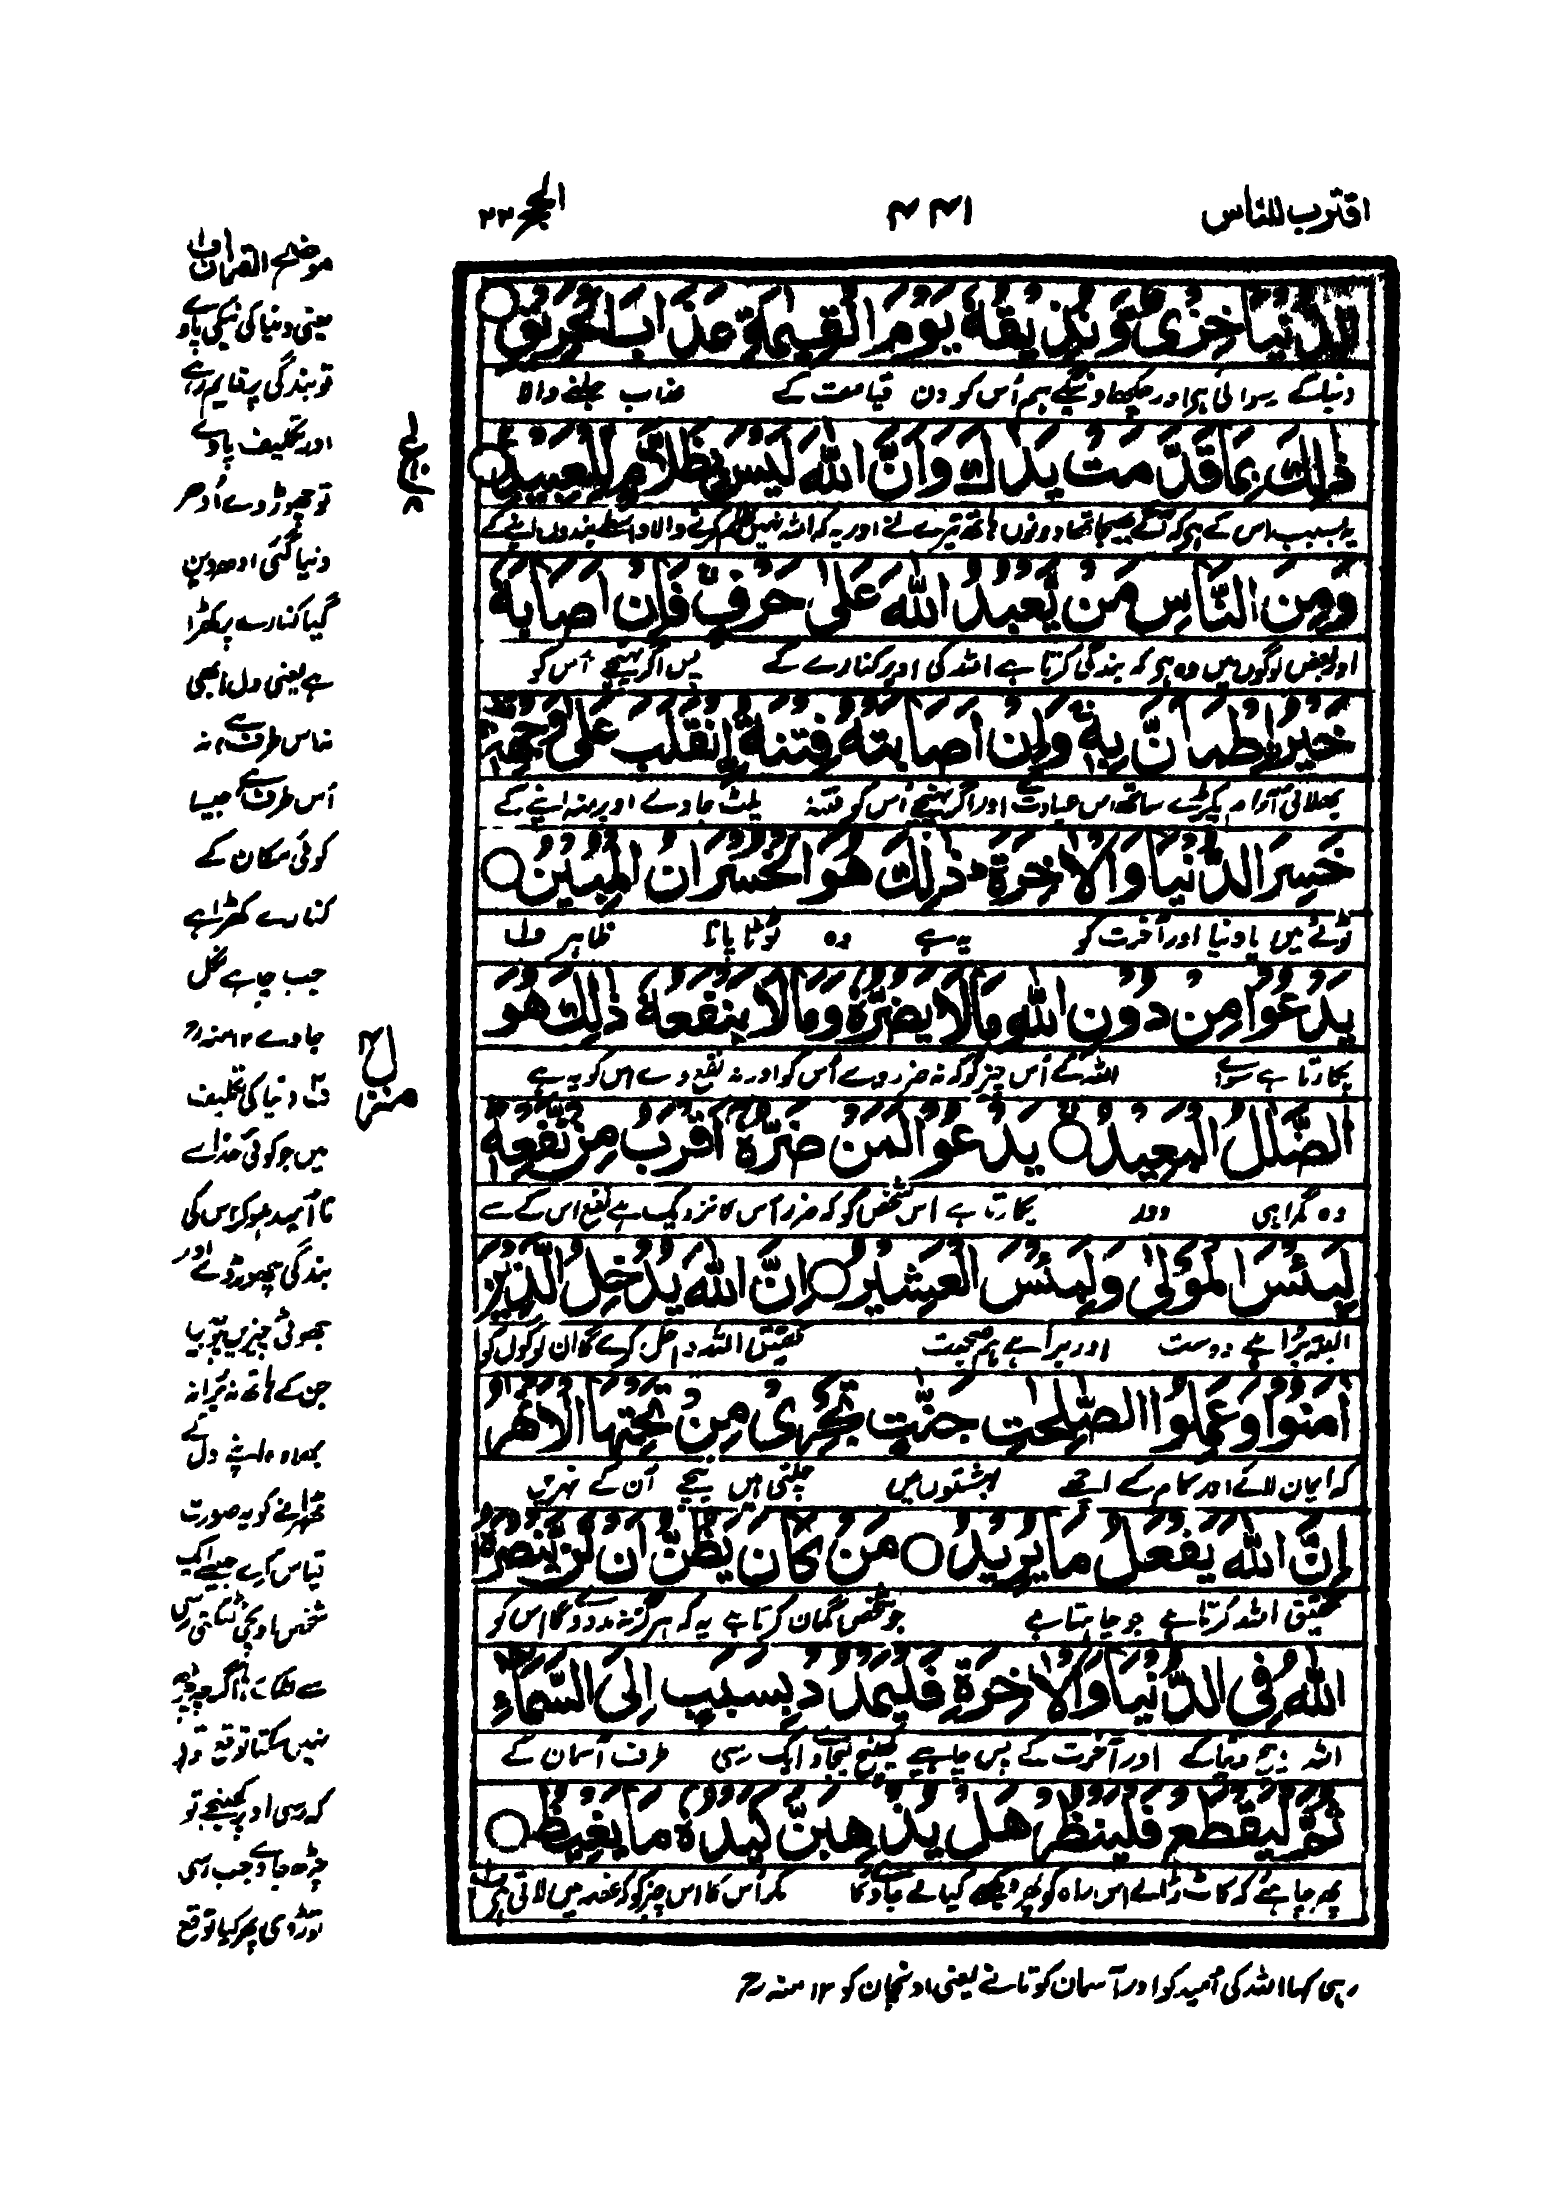 اقترب للناس
۴۴۱
الحج ۲۲
الدُّنْيَا خِزْيٌ وَّنُذِيْقُهٗ يَوْمَ الْقِيٰمَةِ عَذَابَ الْحَرِيْقِ ○
دنیا کے رسوائی ہے اور چکھاوینگے ہم اُس کو دن قیامت کے عذاب جلنے والا
ذٰلِكَ بِمَا قَدَّمَتْ يَدٰكَ وَاَنَّ اللّٰهَ لَيْسَ بِظَلَّامٍ لِّلْعَبِيْدِ ○
یہ بسبب اس کے ہے کہ آگے بھیجا تھا دونوں ہاتھ تیرے نے اور یہ کہ اللہ نہیں ظلم کرنے والا واسطے بندوں اپنے کے
وَمِنَ النَّاسِ مَنْ يَّعْبُدُ اللّٰهَ عَلٰى حَرْفٍ فَاِنْ اَصَابَهٗ
اور بعض لوگوں میں وہ ہے کہ بندگی کرتا ہے اللہ کی اوپر کنارے کے پس اگر پہنچے اُس کو
خَيْرُ ࣙاطْمَاَنَّ بِهٖ وَاِنْ اَصَابَتْهُ فِتْنَةُ ࣙانْقَلَبَ عَلٰى وَجْهِهٖ
بھلائی آرام پکڑے ساتھ اس عبادت کے اور اگر پہنچے اُس کو فتنہ پلٹ جاوے اوپر منہ اپنے کے
خَسِرَ الدُّنْيَا وَالْاٰخِرَةَ ؕ ذٰلِكَ هُوَ الْخُسْرَانُ الْمُبِيْنُ ○
ٹوٹے میں پایا دنیا اور آخرت کو یہ ہے وہ ٹوٹا پانا ظاہر ف۱
يَدْعُوْا مِنْ دُوْنِ اللّٰهِ مَا لَا يَضُرُّهٗ وَمَا لَا يَنْفَعُهٗ ذٰلِكَ هُوَ
پکارتا ہے سوائے اللہ کے اُس چیز کو کہ نہ ضرر دے اُس کو اور نہ نفع دے اس کو یہ ہے
الضَّلٰلُ الْبَعِيْدُ ○ يَدْعُوْا لَمَنْ ضَرُّهٗۤ اَقْرَبُ مِنْ نَّفْعِهٖ
وہ گمراہی دور پکارتا ہے اس شخص کو کہ ضرر اُس کا نزدیک ہے نفع اس کے سے
لَبِئْسَ الْمَوْلٰى وَلَبِئْسَ الْعَشِيْرُ ○ اِنَّ اللّٰهَ يُدْخِلُ الَّذِيْنَ
البتہ برُا ہے دوست اور برا ہے ہم صحبت تحقیق اللہ داخل کرے گا ان لوگوں کو
اٰمَنُوْا وَعَمِلُوا الصّٰلِحٰتِ جَنّٰتٍ تَجْرِيْ مِنْ تَحْتِهَا الْاَنْهٰرُ
کہ ایمان لائے اور کام کئے اچھے بہشتوں میں چلتی ہیں نیچے اُن کے نہریں
اِنَّ اللّٰهَ يَفْعَلُ مَا يُرِيْدُ ○ مَنْ كَانَ يَظُنُّ اَنْ لَّنْ يَّنْصُرَهُ
تحقیق اللہ کرتا ہے جو چاہتا ہے جو شخص گمان کرتا ہے یہ کہ ہرگز نہ مدد دے گا اس کو
اللّٰهُ فِى الدُّنْيَا وَالْاٰخِرَةِ فَلْيَمْدُدْ بِسَبَبٍ اِلَى السَّمَآءِ
اللہ بیچ دنیا کے اور آخرت کے پس چاہیے کھینچ لیجاوے ایک رسی طرف آسمان کے
ثُمَّ لْيَقْطَعْ فَلْيَنْظُرْ هَلْ يُذْهِبَنَّ كَيْدُهٗ مَا يَغِيْظُ ○
پھر چاہئے کہ کاٹ ڈالے اس راہ کو پھر دیکھے کیا لے جاوے گا مکر اُس کا اس چیز کو کہ غصہ میں لاتی ہے ف۲
ع
۸
منزل ۴
موضح القرآن
ف۱ یعنی دنیا کی نیکی پاوے
تو بندگی پر قایم رہے
اور تکلیف پاوے
تو چھوڑ دے اُدھر
دنیا گئی ادھر دین
گیا کنارے پر کھڑا
ہے یعنی دل ابھی
نہ اس طرف ہے نہ
اُس طرف ہے جیسا
کوئی مکان کے
کنارے کھڑا ہے
جب چاہے نکل
جاوے ۱۲ منہ رح
ف۲ دنیا کی تکلیف
میں جو کوئی خدا سے
نا اُمید ہو کر اس کی
بندگی چھوڑ دے اور
جھوٹی چیزیں پوجے
جن کے ہاتھ نہ بُرا نہ
بھلا وہ اپنے دل کے
ٹھہرانے کو یہ صورت
قیاس کرے جیسے ایک
شخص اونچی لٹکتی رسی
سے لٹکتا ہے اگر چڑھ
نہیں سکتا توقع تو ہے
کہ رسی اوپر کھینچے تو
چڑھ جاوے جب رسی
توڑ دی پھر کیا توقع
رہی کہا اللہ کی اُمید کو اور آسمان کو تانے یعنی اونچان کو ۱۲ منہ رح